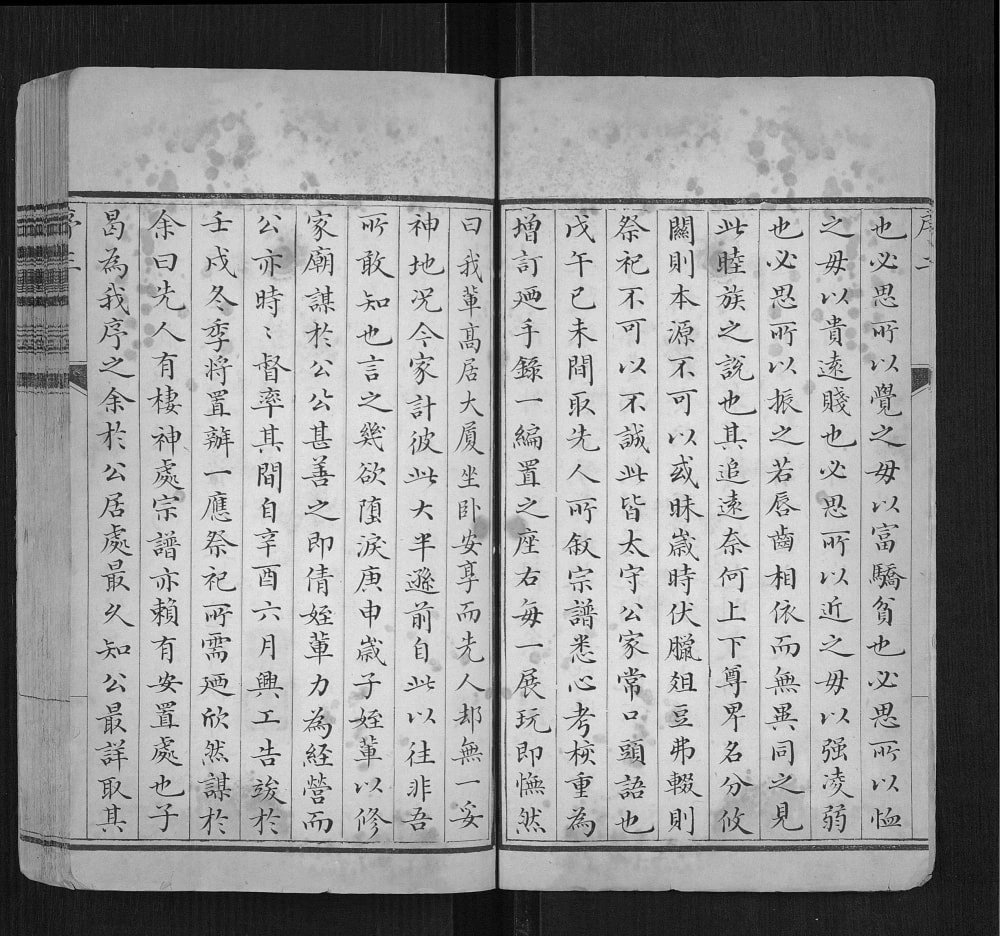 序二
也必思所以覺之毋以富驕貧也必思所以恤
之毋以貴遠賤也必思所以近之毋以强凌弱
也必思所以振之若唇齒相依而無異同之見
此睦族之說也其追遠奈何上下尊卑名分攸
關則本源不可以或昧歲時伏臘俎豆弗輟則
祭祀不可以不誠此皆太守公家常口頭語也
戊午己未間取先人所敘宗譜悉心考校重為
增訂廼手錄一編置之座右每一展玩即憮然
曰我輩高居大厦坐卧安享而先人却無一妥
神地况今家計彼此大半遜前自此以往非吾
所敢知也言之幾欲墮淚庚申歲子姪輩以修
家廟謀於公公甚善之即倩姪輩力為經營而
公亦時〻督率其間自辛酉六月興工告竣於
壬戌冬季將置辦一應祭祀所需廼欣然謀於
余曰先人有棲神處宗譜亦賴有安置處也子
曷為我序之余於公居處最久知公最詳取其
序三